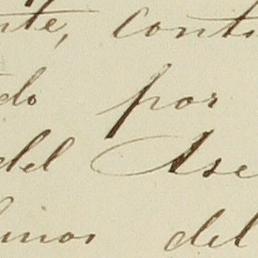 nte, conti
do por
del Ase
inos del